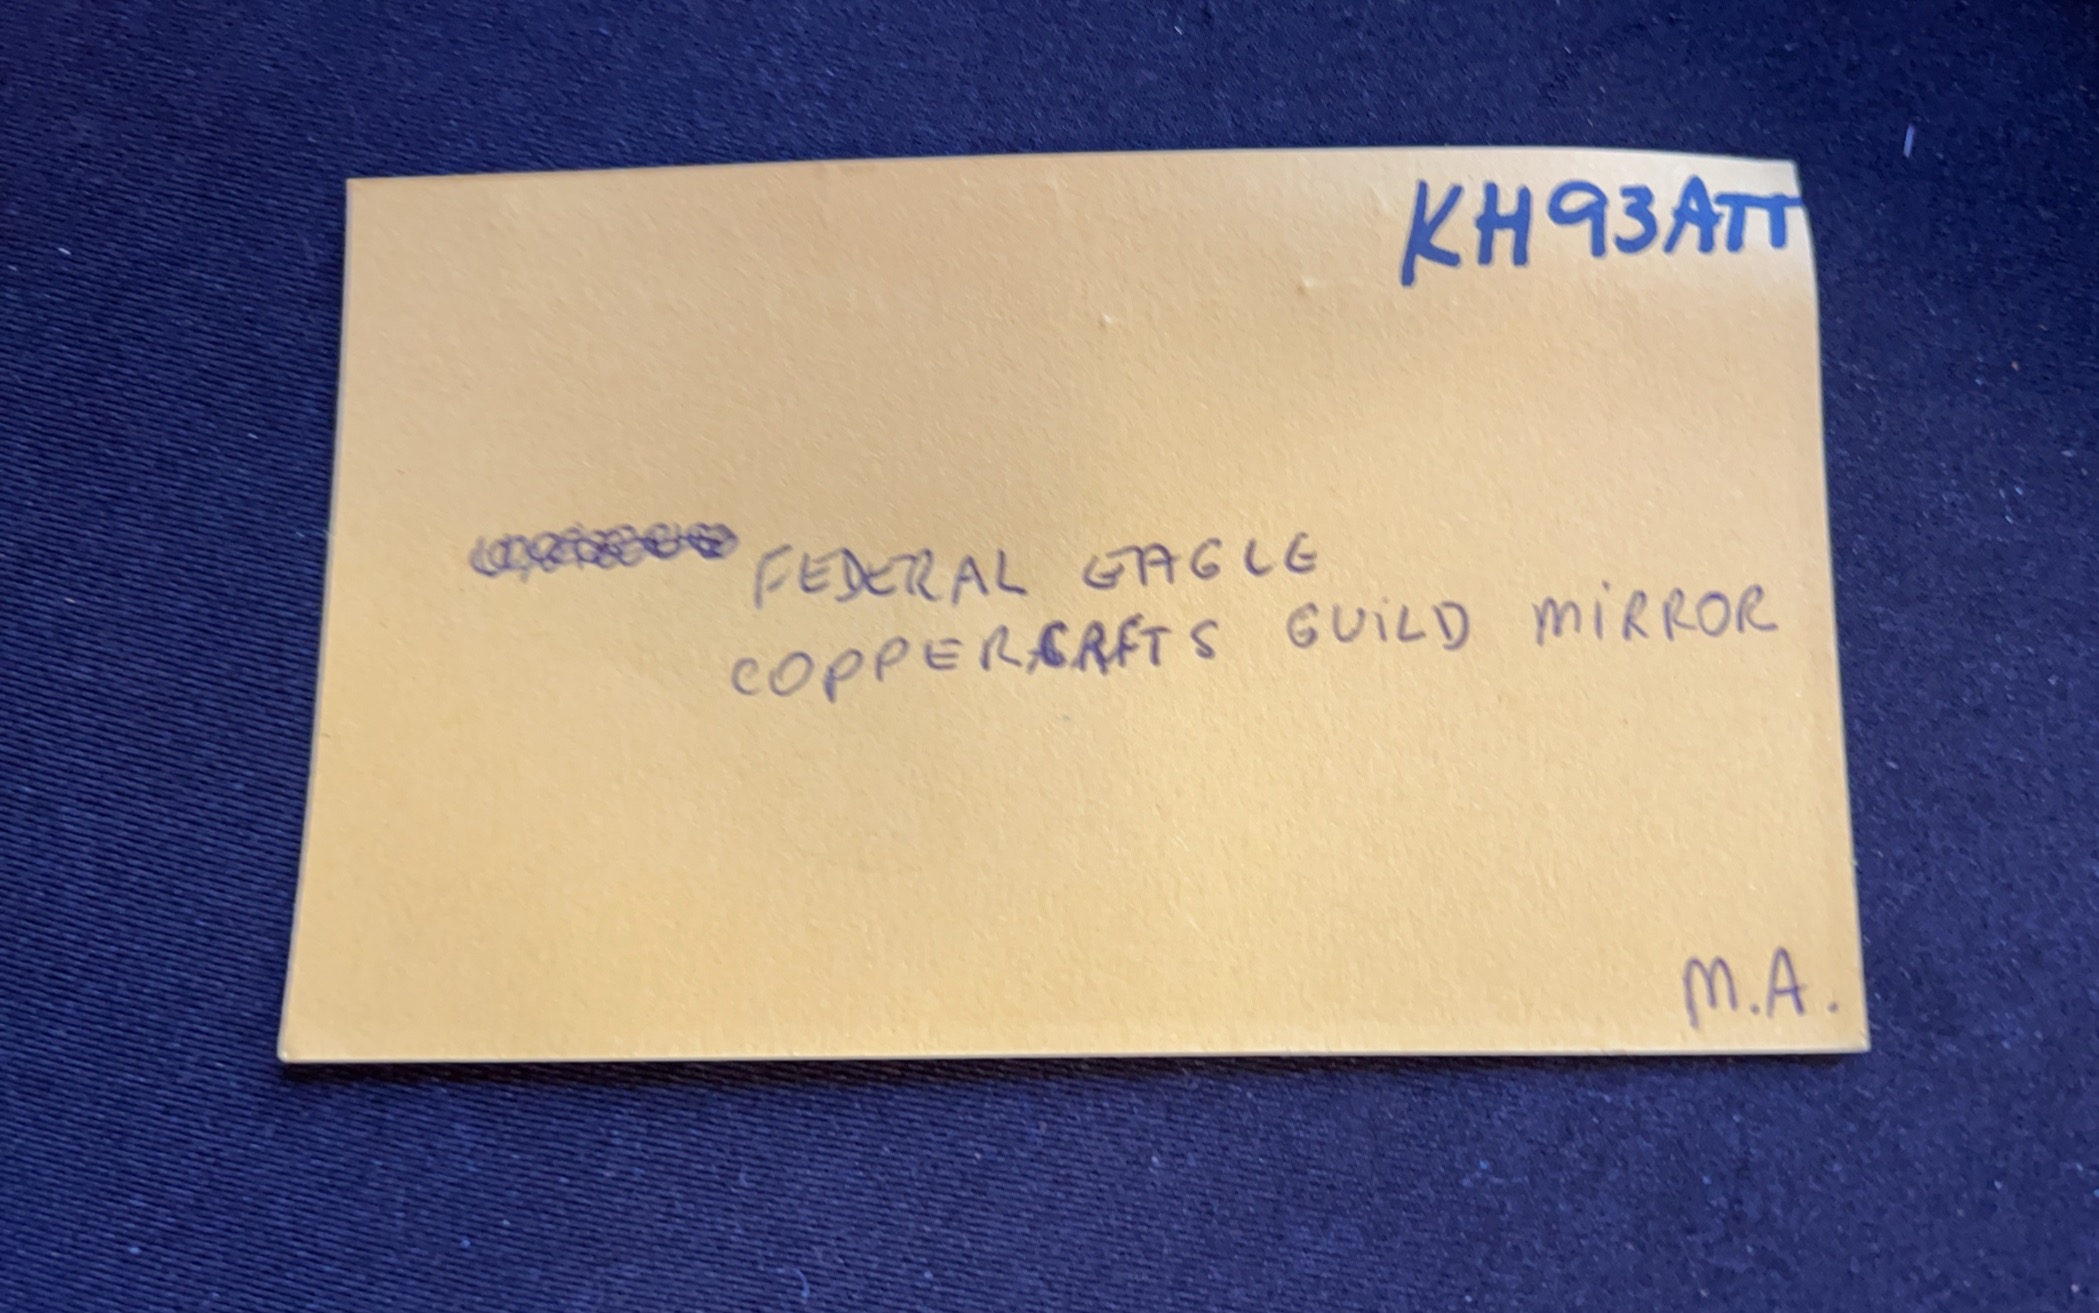 KH93ATT
FEDERAL EAGLE
COPPERCRAFTS GUiLD MiRROR
M.A.